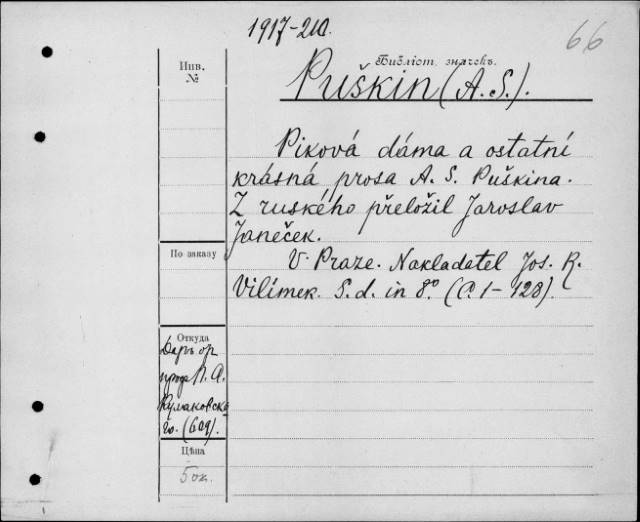 1917-210.
66
Инв.
№
Библіот. значекъ.
Puškin (A. S.).
Piková dáma a ostatní
krásná prosa A. S. Puškina.
Z ruského přeložil Jaroslav
Janeček.
V Praze. Nakladatel Jos. R.
Vilímek. S. d. in 8º. (C. 1-128).
По заказу
Откуда
Даръ
П. А.
Кулаковска
го. (609).
Цѣна
50к.